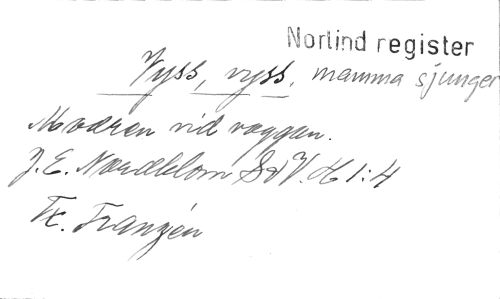 Norlind register
Vyss, vyss, mamma sjunger
Modren vid vaggan.
J. E. Nordblom SvV. H 1:4
Tx. Franzén